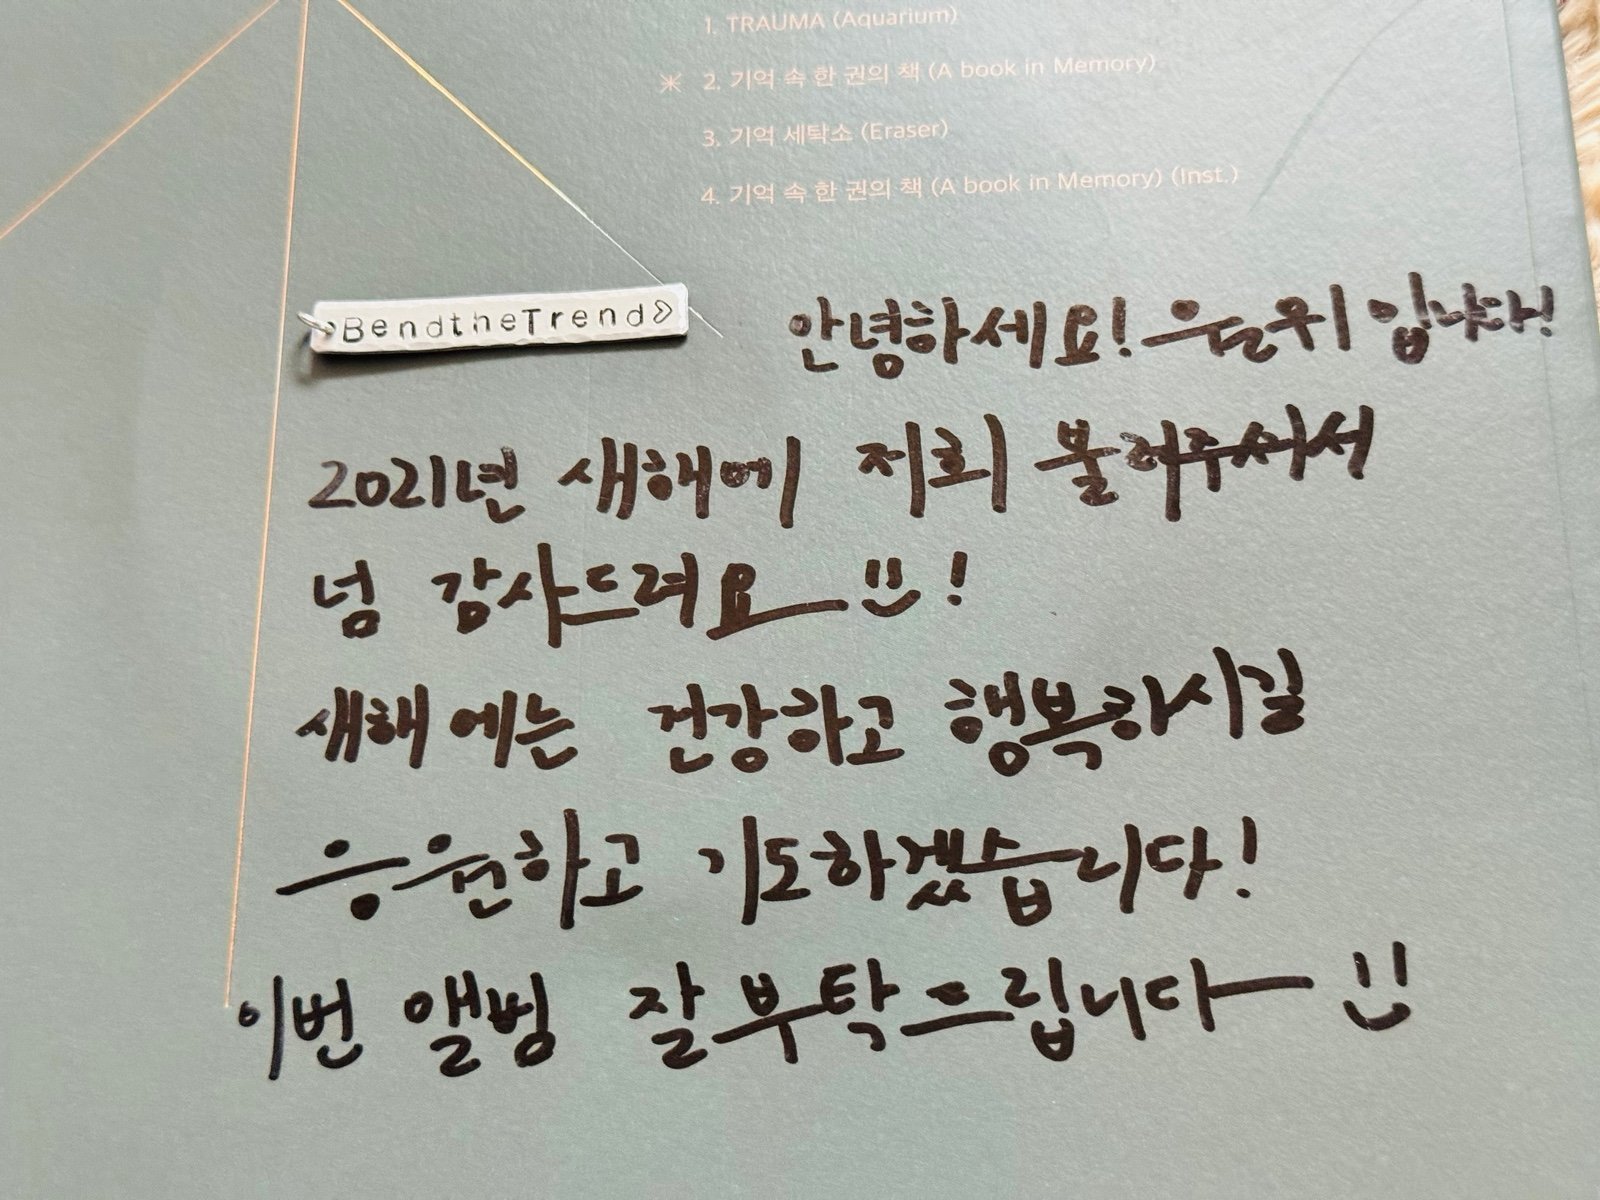 1. TRAUMA (Aquarium)
✳ 2. 기억 속 한 권의 책 (A book in Memory)
3. 기억 세탁소 (Eraser)
4. 기억 속 한 권의 책 (A book in Memory) (Inst.)
BendtheTrend
안녕하세요! 은위 입니다!
2021년 새해에 저희 불러주셔서
넘 감사드려요 !
새해에는 건강하고 행복하시길
응원하고 기도하겠습니다!
이번 앨범 잘 부탁드립니다